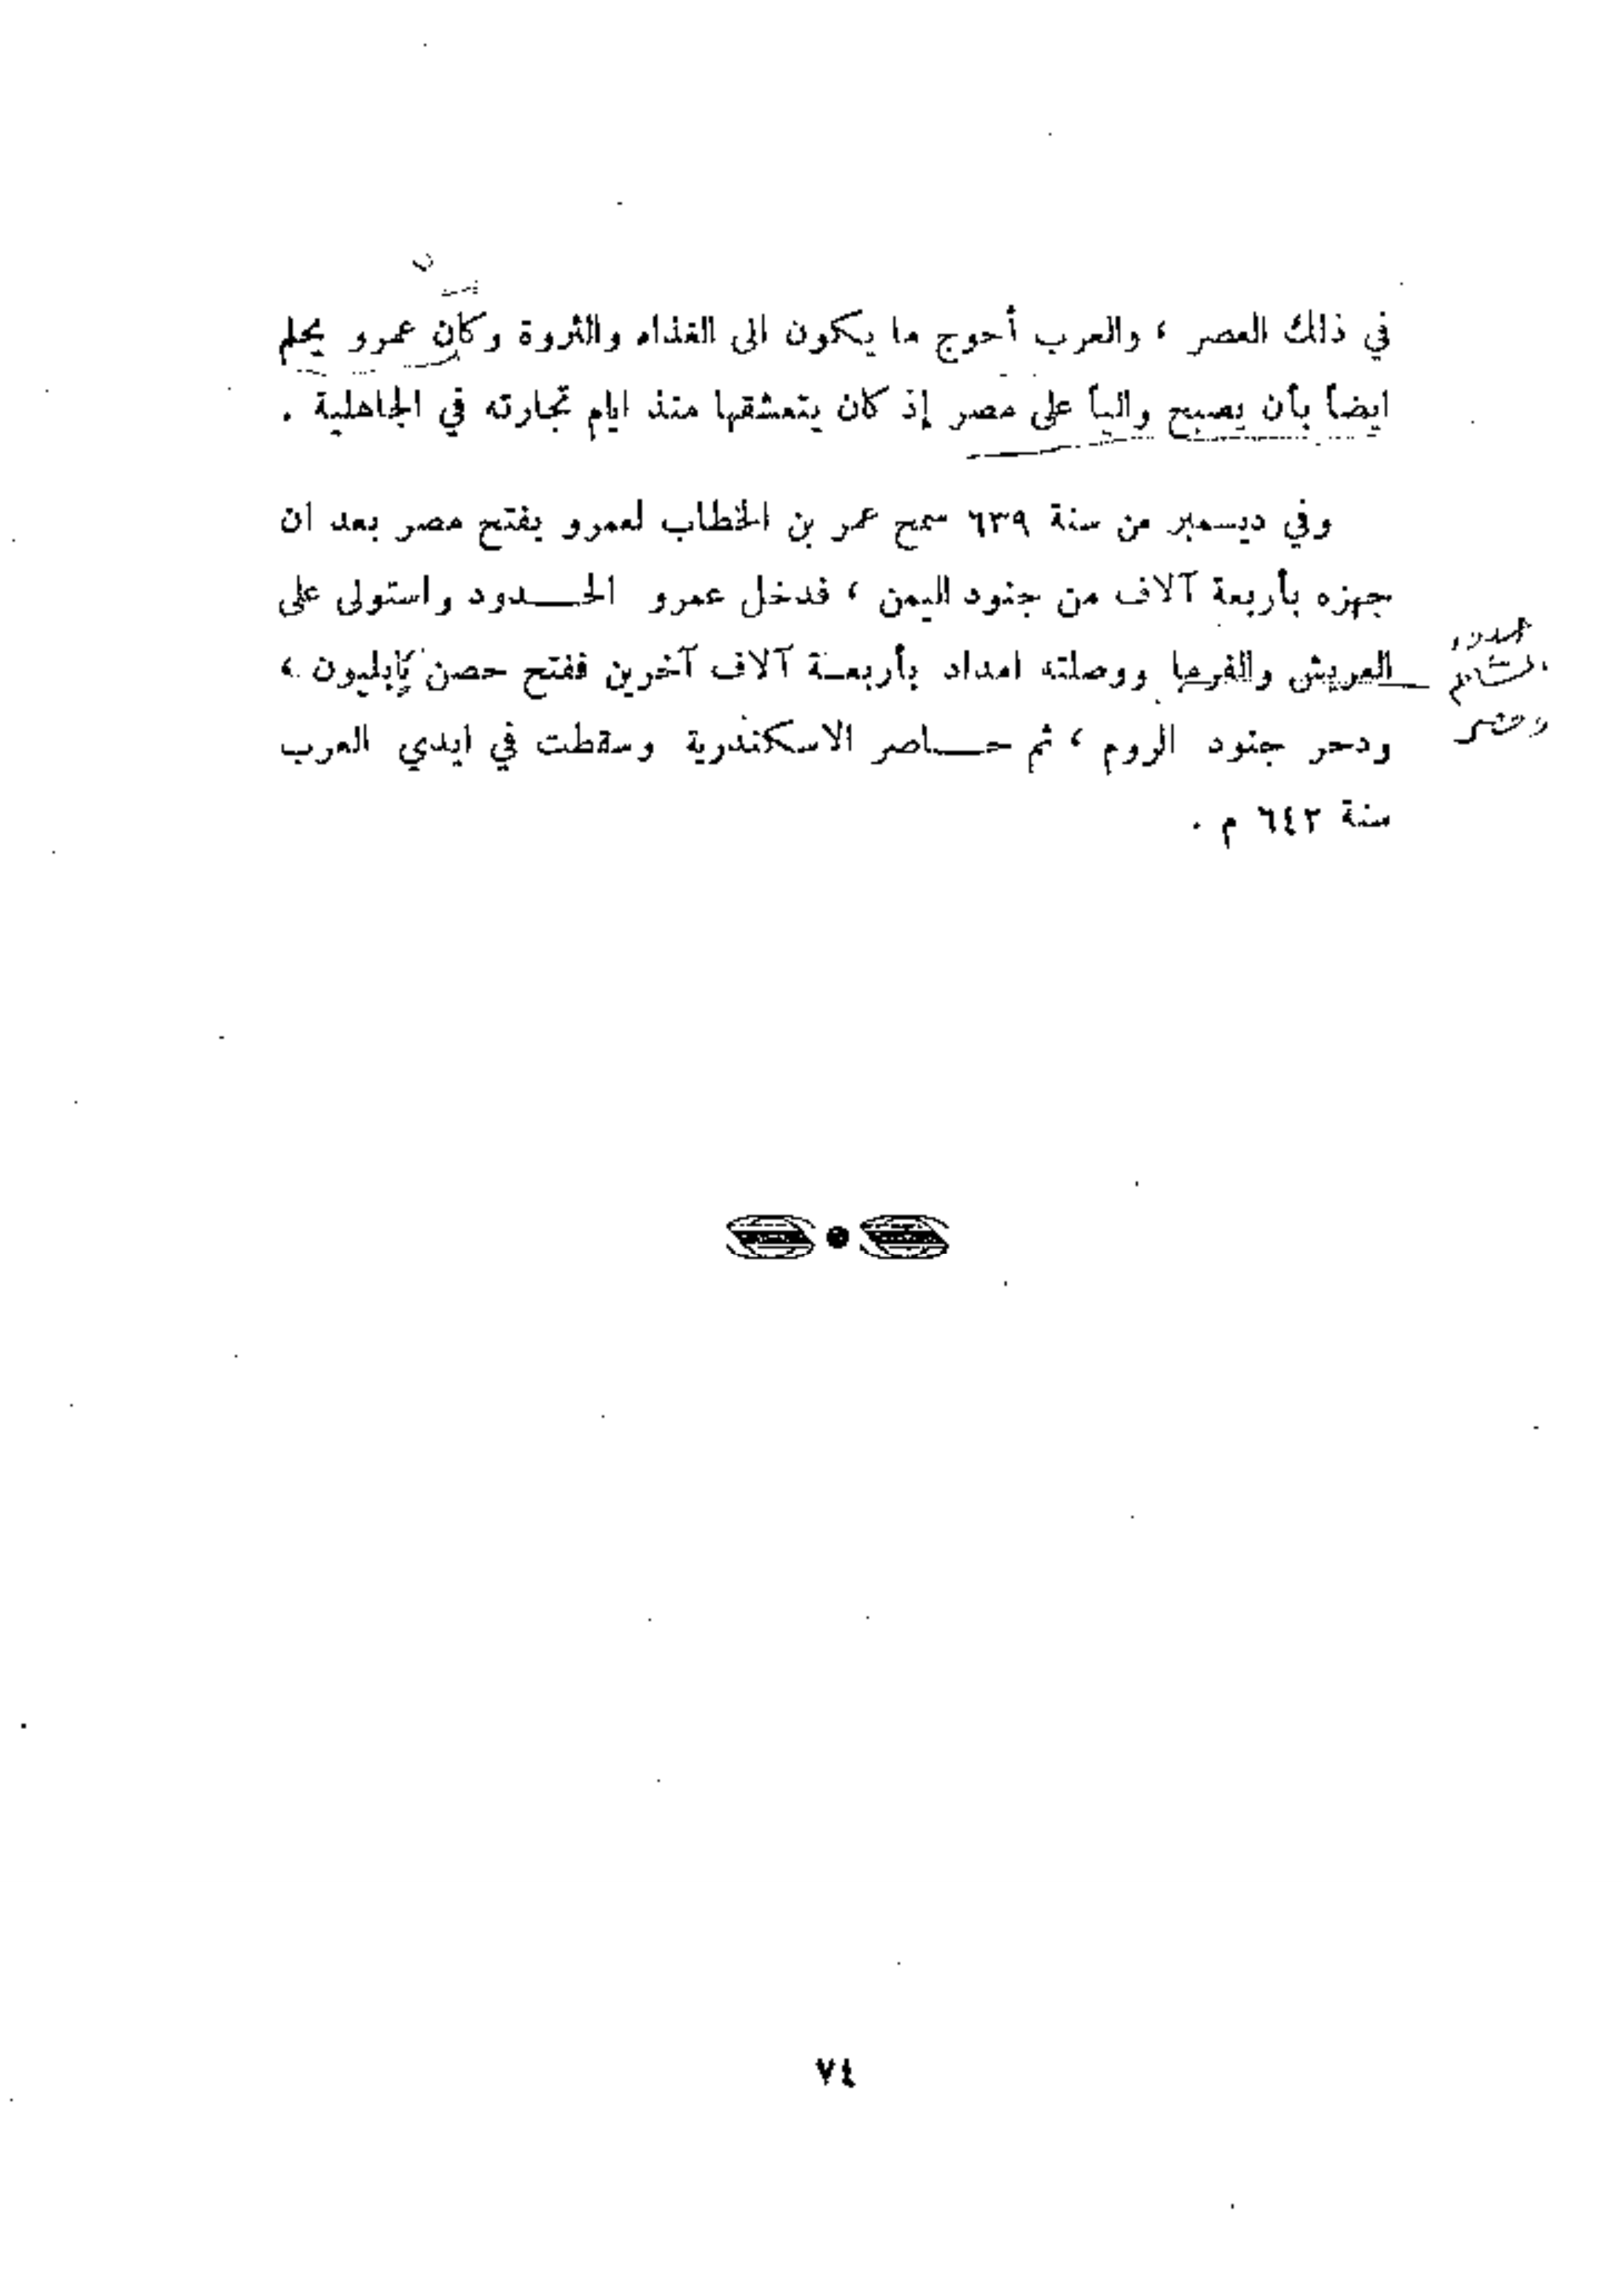 في ذلك العصر ، والعرب أحوج ما يكون الى الغذاء والثروة وكان عمرو يحلم
ايضاً بأن يصبح والياً على مصر إذ كان يتعشقها منذ ايام تجارته في الجاهلية .
وفي ديسمبر من سنة ٦٣٩ سمح عمر بن الخطاب لعمرو بفتح مصر بعد ان
جهزه بأربعة آلاف من جنود اليمن ، فدخل عمرو الحـــدود واستولى على
العريش والفرما ووصلته امداد بأربعـة آلاف آخرين ففتح حصن بابليون ،
ودحر جنود الروم ، ثم حـــاصر الاسكندرية وسقطت في ايدي العرب
سنة ٦٤٢ م .
الحدود
الشام
ومصر
٧٤